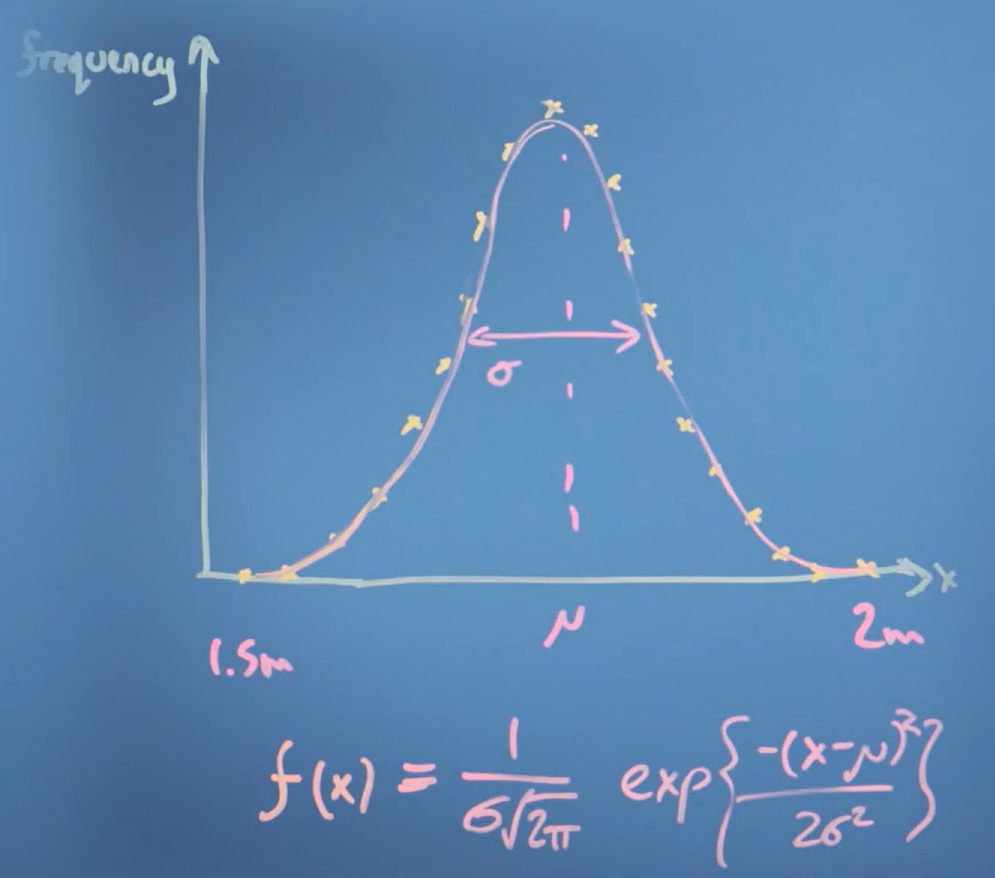 frequency
σ
x
1.5m
μ
2m
f(x) = 1/(σ√2π) exp{-(x-μ)²/2σ²}